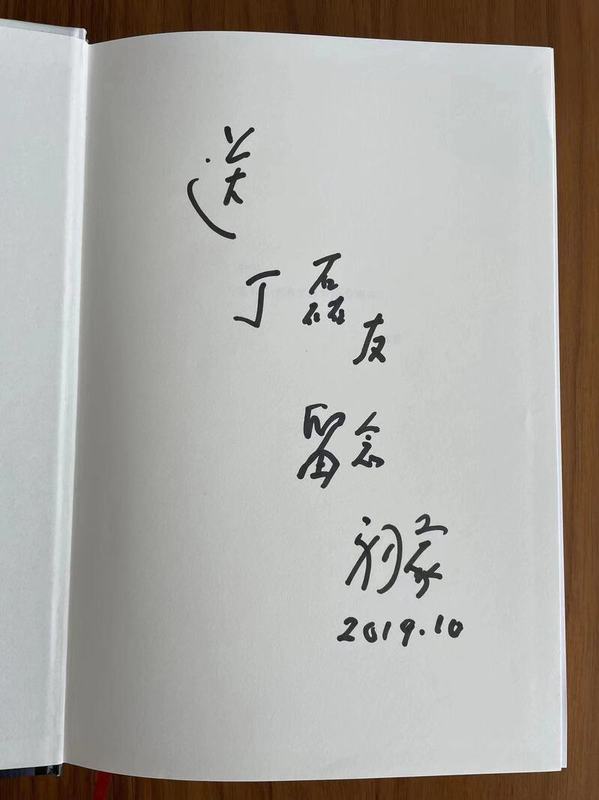 送
丁磊友
留念
2019.10